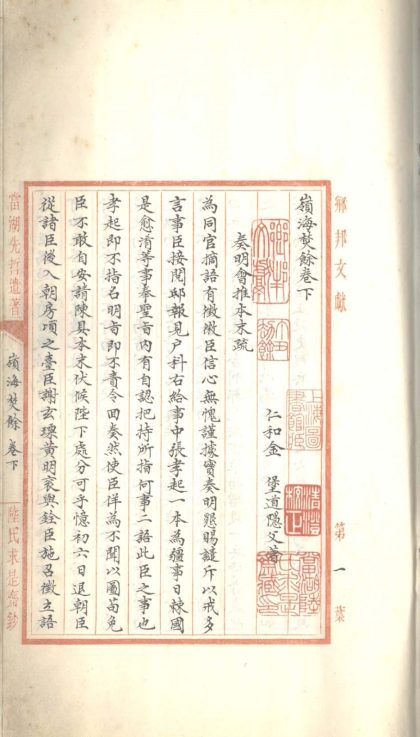 鄉邦文獻
第一葉
嶺海焚餘卷下
仁和金 堡道隱父著
奏明會推本末疏
為同官摘語有徵微臣信心無愧謹據實奏明懇賜譴斥以戒多
言事臣接閱邸報見戶科右給事中張孝起一本為疆事日棘國
是愈淆等事奉聖旨內有自認把持所指何事二語此臣之事也
孝起即不指名明旨即不責令回奏然使臣佯為不聞以圖苟免
臣不敢自安請陳具本末伏候陛下處分可乎憶初六日退朝臣
從諸臣後入朝房頃之臺臣謝玄瑛黃明袞與銓臣施召徵立語
當湖先哲遺著
嶺海焚餘 卷下
陸氏求是齋鈔